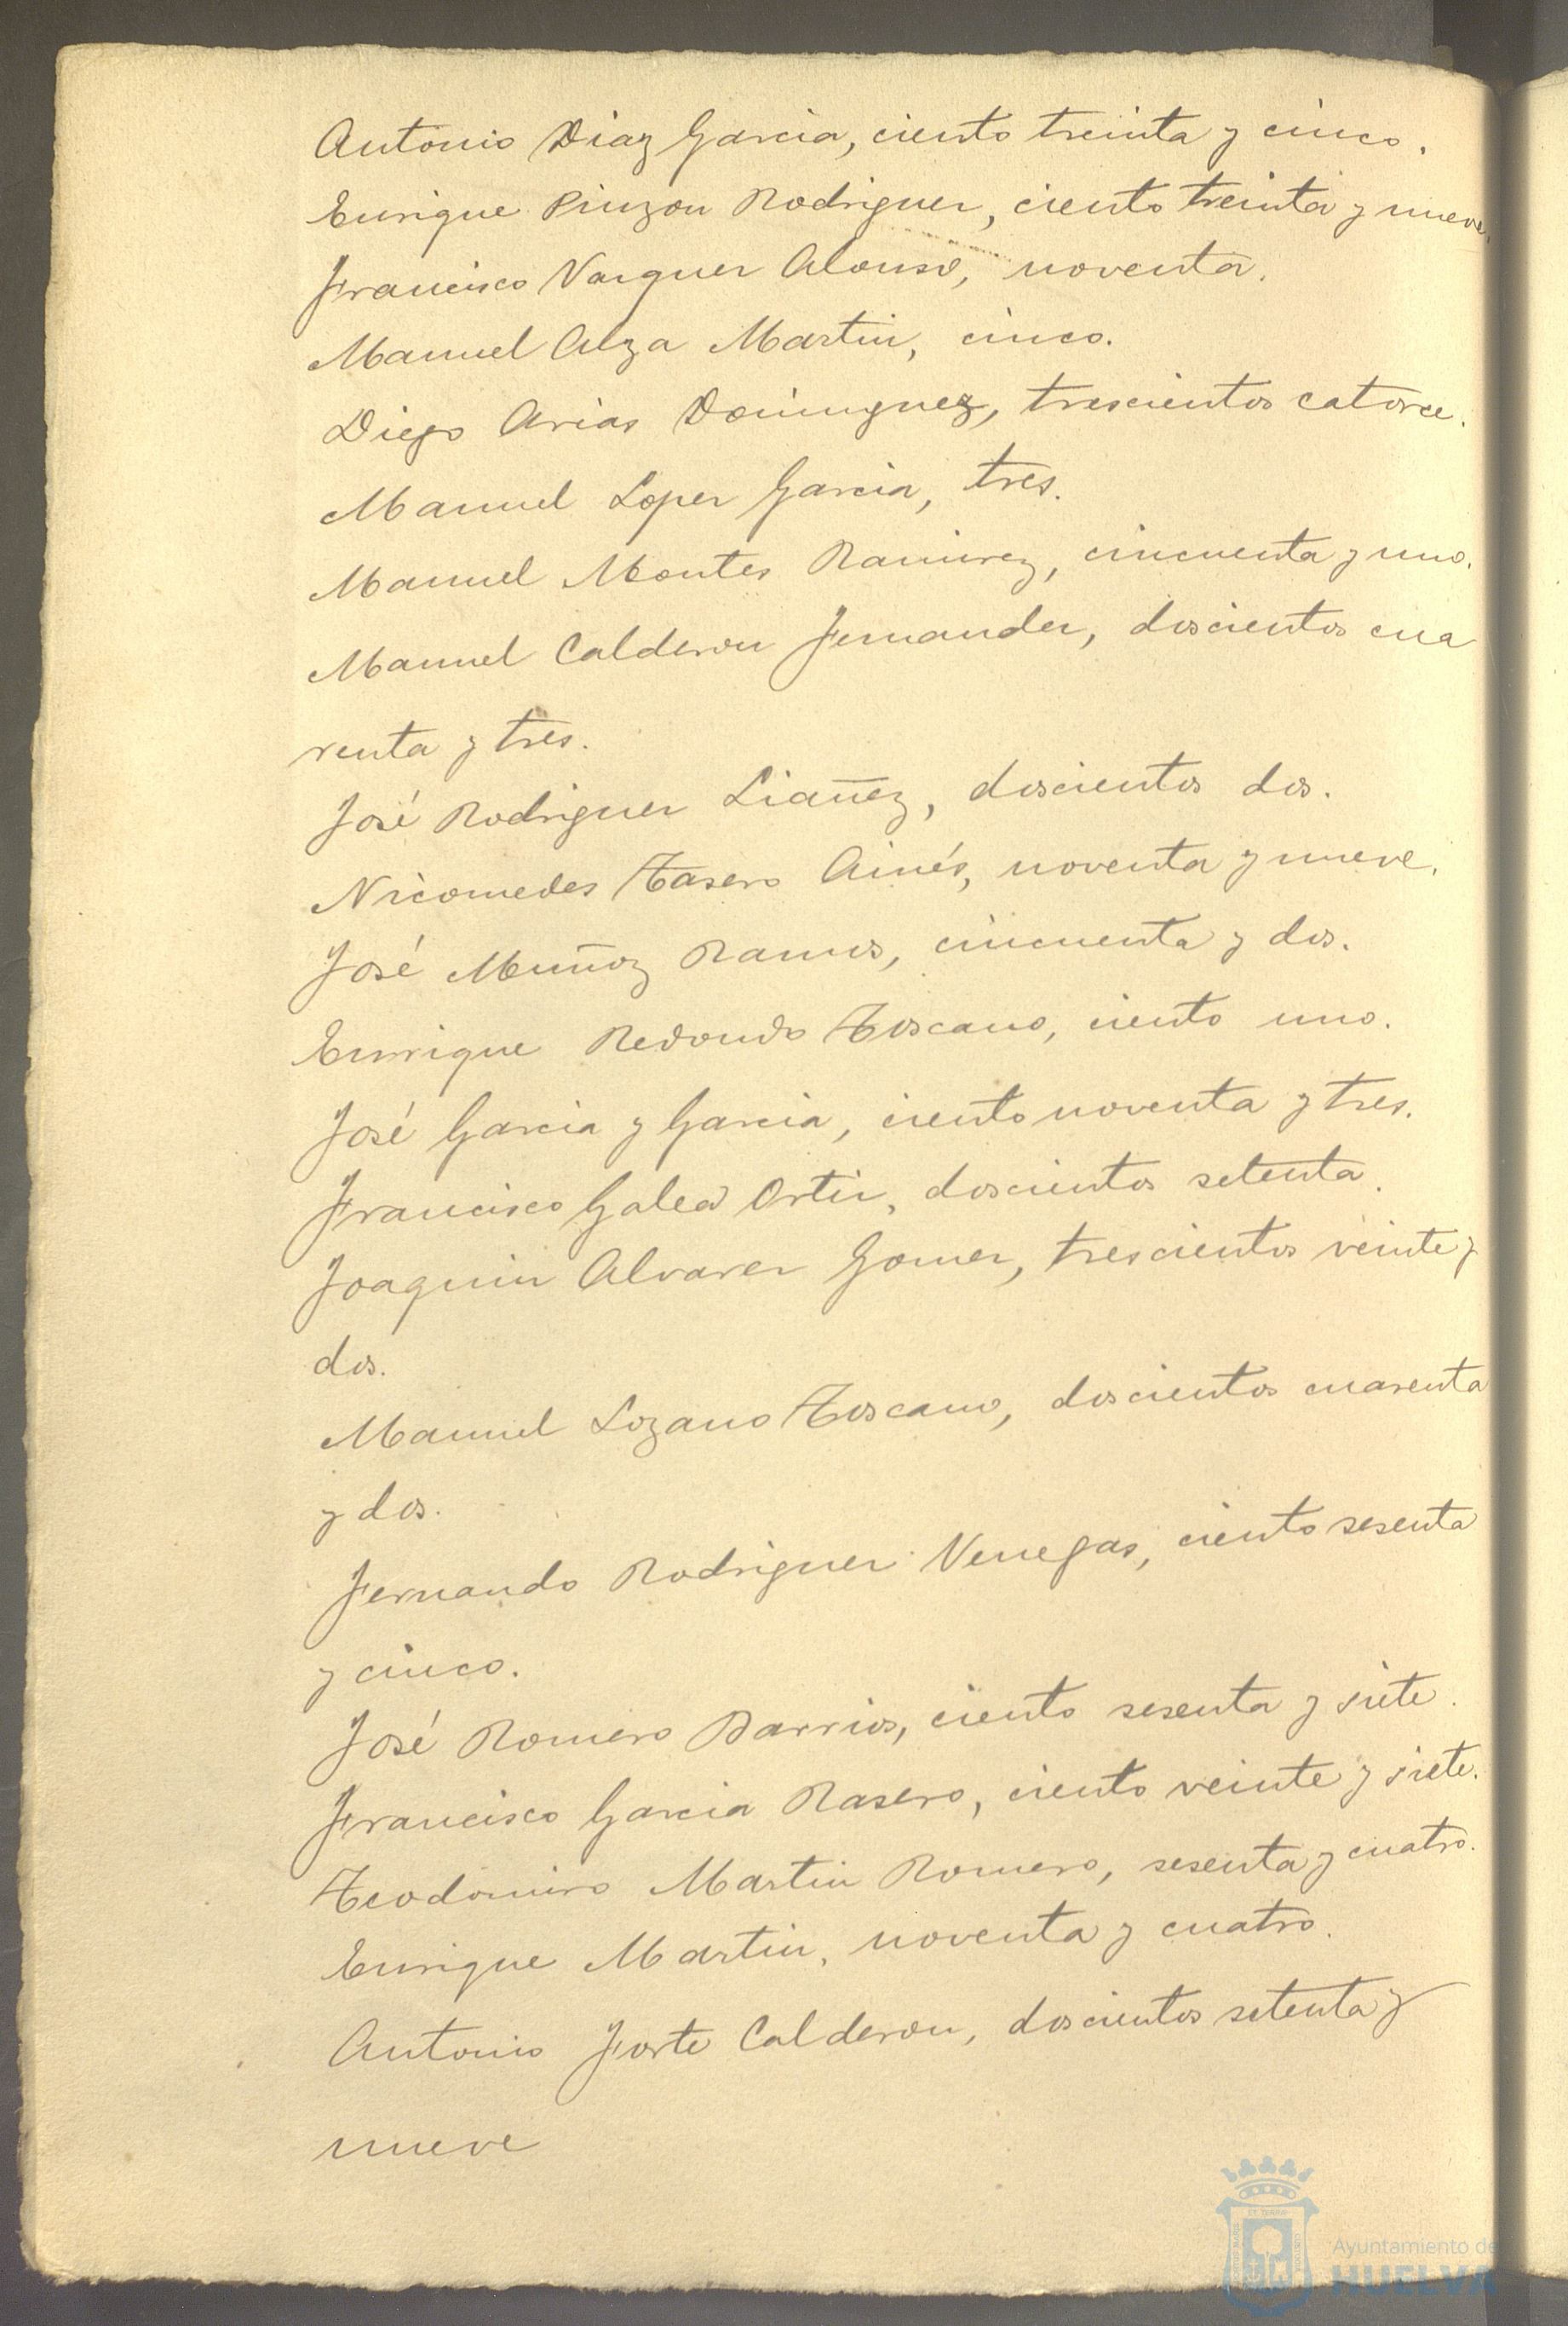 Antonio Diaz Garcia, ciento treinta y cinco.
Enrique Pinzon Rodriguez, ciento treinta y nueve.
Francisco Vazquez Alonso, noventa.
Manuel Alza Martin, cinco.
Diego Arias Dominguez, trescientos catorce.
Manuel Lopez Garcia, tres.
Manuel Montes Ramirez, cincuenta y uno.
Manuel Calderon Fernandez, doscientos cua
renta y tres.
José Rodriguez Liañez, doscientos dos.
Nicomedes Tasero Ainés, noventa y nueve.
José Muñoz Ramos, cincuenta y dos.
Enrique Redondo Toscano, ciento uno.
José Garcia y Garcia, ciento noventa y tres.
Francisco Galea Ortiz, doscientos setenta.
Joaquin Alvarez Gomez, trescientos veinte y
dos.
Manuel Lozano Toscano, doscientos cuarenta
y dos.
Fernando Rodriguez Venegas, ciento sesenta
y cinco.
José Romero Barrios, ciento sesenta y siete.
Francisco Garcia Rasero, ciento veinte y siete.
Teodomiro Martin Romero, sesenta y cuatro.
Enrique Martin, noventa y cuatro.
Antonio Forte Calderon, doscientos setenta y
nueve
Ayuntamiento de
HUELVA